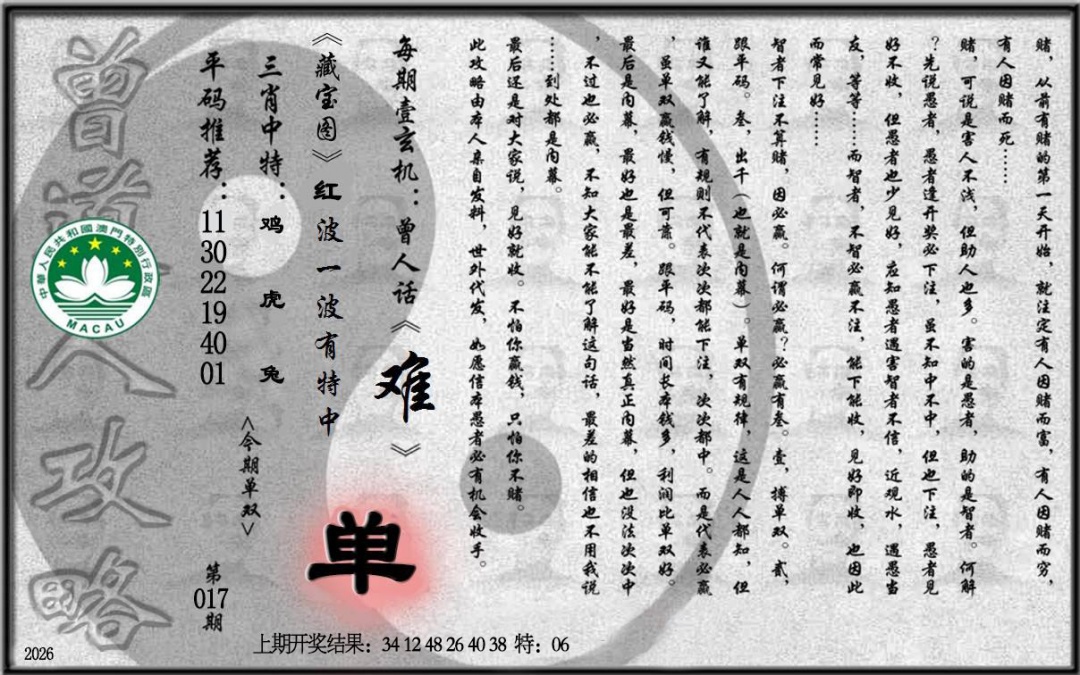 赌，从前有赌的第一天开始，就注定有人因赌而富，有人因赌而穷，
有人因赌而死……
赌，可说是害人不浅，但助人也多。害的是愚者，助的是智者。何解
？先说愚者，愚者逢开奖必下注，虽不知中不中，但也下注，愚者见
好不收，但愚者也少见好，应知愚者遇害智者不信，近观水，遇愚当
友，等等……而智者，不智必赢不注，能下能收，见好即收，也因此
而常见好……
智者下注不算赌，因必赢。何谓必赢？必赢有叁。壹，搏单双。贰，
跟平码。叁，出千（也就是内幕）。单双有规律，这是人人都知，但
谁又能了解，有规则不代表次次都能下注，次次都中。而是代表必赢
，虽单双赢钱慢，但可靠。跟平码，时间长本钱多，利润比单双好。
最后是内幕，最好也是最差，最好是当然真正内幕，但也没法次次中
，不过也必赢，不知大家能不能了解这句话，最差的相信也不用我说
……到处都是内幕。
最后还是对大家说，见好就收。不怕你赢钱，只怕你不赌。
此攻略由本人亲自发料，世外代发，如愿信本愚者必有机会收手。
每期壹玄机：曾人话《难》
《藏宝图》红波一波有特中
单
三肖中特：鸡 虎 兔
<今期单双>
平码推荐：11 30 22 19 40 01
第017期
曾道人攻略
中華人民共和國澳門特別行政區
MACAU
上期开奖结果：34 12 48 26 40 38 特：06
2026